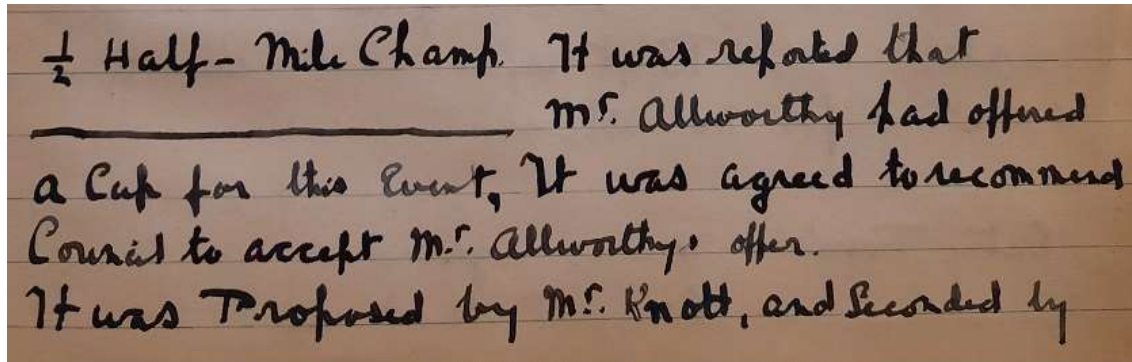 ½ Half - Mile Champ. It was reported that
Mr. Allworthy had offered
a Cup for this Event, It was agreed to recommend
Council to accept Mr. Allworthys offer.
It was Proposed by Mr. Knott, and Seconded by